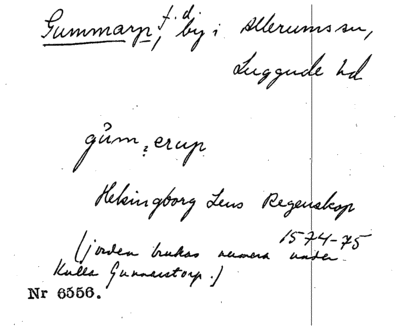 Gummarp, f.d. by i Allerums sn,
Luggude hd
gům₂erup
Helsingborg Lens Regenskap
1574-75
(jorden brukas numera under
Kulla Gunnarstorp.)
Nr 6556.